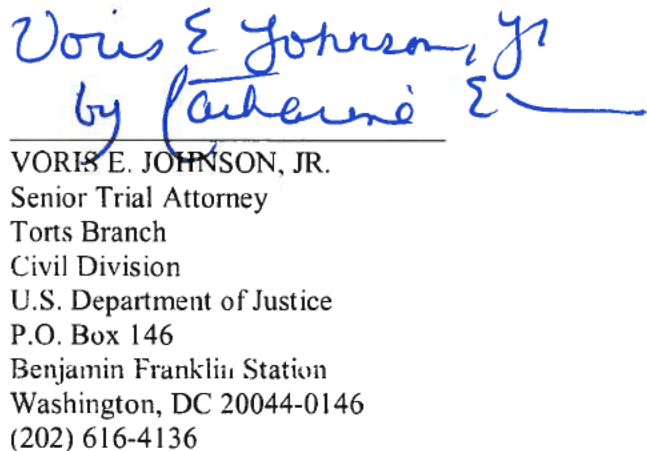 Voris E Johnson, Jr
by Catharine E
VORIS E. JOHNSON, JR.
Senior Trial Attorney
Torts Branch
Civil Division
U.S. Department of Justice
P.O. Box 146
Benjamin Franklin Station
Washington, DC 20044-0146
(202) 616-4136